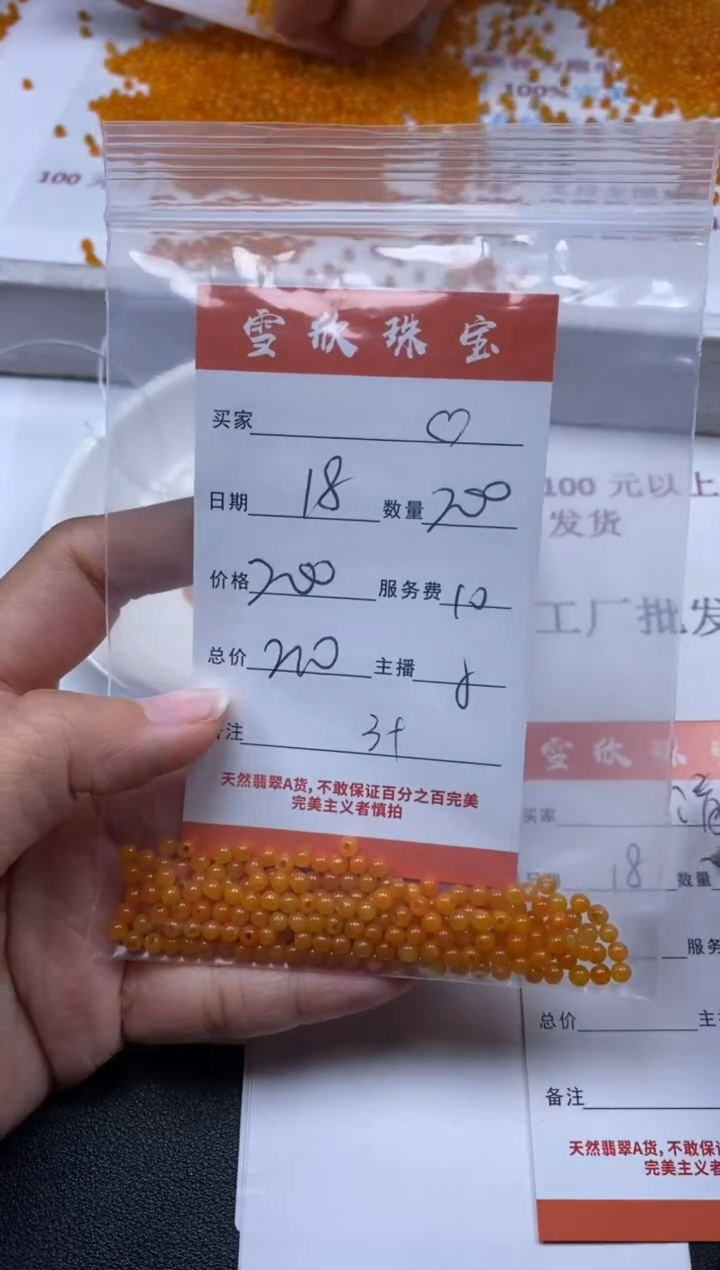 100%
100
雪欣珠宝
买家 ♡
日期 18 数量 200
价格 200 服务费 10
总价 210 主播
备注 3+
天然翡翠A货,不敢保证百分之百完美
完美主义者慎拍
100 元以上
发货
工厂批发
雪欣珠
买家
18 数量
服务
总价 主
备注
天然翡翠A货,不敢保
完美主义者